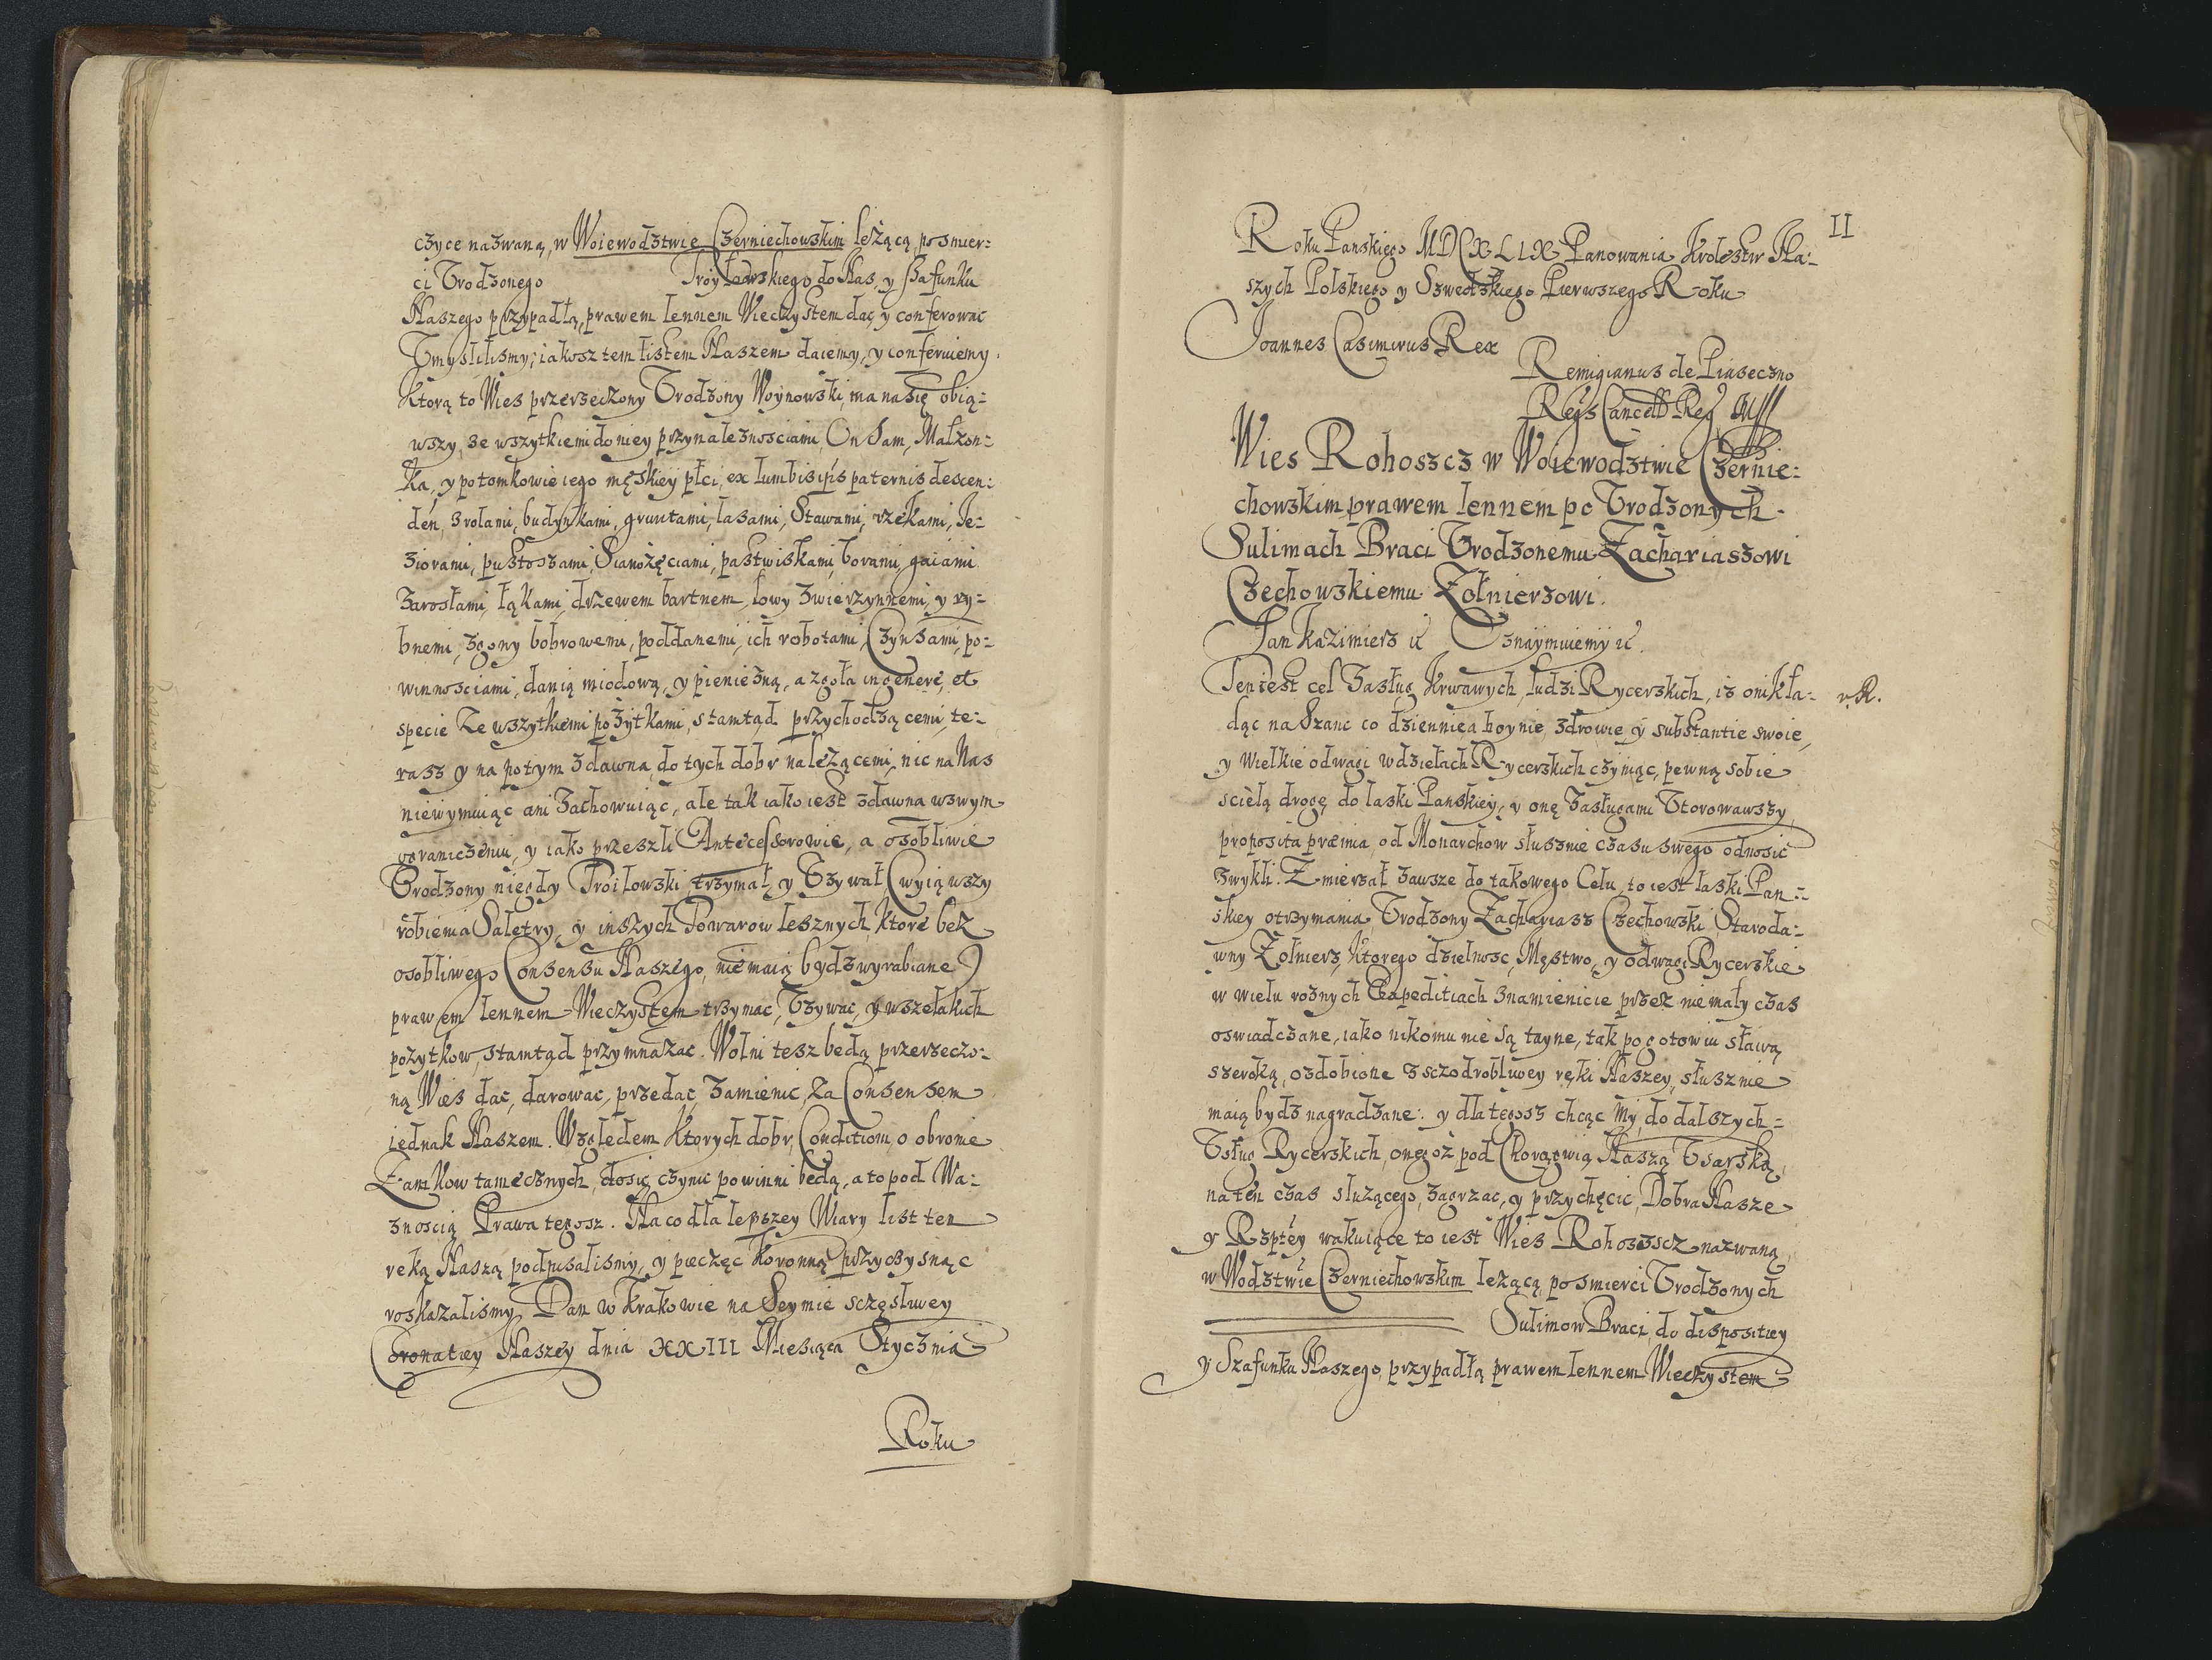 czyce nazwaną, w Woiewodztwie Czerniechowskim leżącą, po smier=
ci Urodzonego Troyładrskiego do Nas, y szafunku
Naszego przypadłą, prawem lennem Wieczystem dac, y conferowac
Umyslilismy; iakosz tem listem Naszem daiemy, y conferuiemy.
Ktorą to Wies przerzeczony Urodzony Woynowski, ma na się obią=
wszy, ze wszytkiemi do niey przynaleznosciami, On Sam, Małzon=
ka, y potomkowie iego męskiey płci, ex lumbis ip̃s paternis descen=
den, z rolami, budynkami, gruntami, lasami, Stawami, rzekami, Je=
ziorami, pustoszami, Sianożęciami, pastwiskami, borami, gaiami
Zarosłami, łąkami, drzewem bartnem, lowy zwierzynnemi, y ry=
bnemi, zgony bobrowemi, poddanemi, ich robotami, Czynszami, po=
winnosciami, danią miodową, y pienieżną, a zgoła in genere, et
specie Ze wszytkiemi pożytkami, stamtąd przychodzącemi, te=
rasz y na potym zdawna do tych dobr należącemi, nic na Nas
niewymuiąc ani Zachowuiąc, ale tak iako iest zdawna w swym
ograniczeniu, y iako przeszli Antecessorowie, a osobliwie
Urodzony niegdy Troiłowski trzymał, y Uzywał, (wyiąwszy
robienia Saletry, y inszych Towarow lesznych, ktore bez
osobliwego Consensu Naszego, nie maią bydz wyrabiane)
prawem lennem Wieczystem trzymac, Uzywac, y wszelakich
pożytkow, stamtąd przymnażac. Wolni tesz będą przerzeczo=
ną Wies dac, darowac, przedac, zamienic, za Consensem
iednak Naszem. Względem Ktorych dobr, Conditiom, o obronie
Zamkow tamecznych, dosic czynic powinni będą, a to pod Wa=
znoscią Prawa tegosz. Na co dla lepszey Wiary list ten
ręką Naszą podpisalismy, y pieczęc Koronną przycisnąc
roskazalismy Dan w Krakowie na Seymie sczęsliwey
Coronatiey Naszey dnia XXIII Miesiąca Stycznia
Roku
II
Roku Panskiego MDCXLIX Panowania Krolestw Na=
szych Polskiego y Szwedzkiego Pierwszego Roku
Joannes Casimirus Rex
Remigianus de Piaseczno
Reg̃s Cancell Reg̃
Wies Rohoszcz w Woiewodztwie Czernie=
chowskim, prawem lennem po Urodzonych
Sulimach Braci Urodzonemu Zachariaszowi
Czechowskiemu Zołnierzowi.
Jan Kazimierz Oznaymuiemy
Ten iest cel Zasług Krwawych, ludzi Rycerskich, iz oni kła=
v. R.
dąc na Szanc co dziennie a hoynie zdrowie y substantie swoie,
y wielkie odwagi w dziełach Rycerskich czyniąc, pewną sobie
scielą drogę, do laski Panskiey, y onę Zasługami Utorowawszy
proposita præmia, od Monarchow słusznie czasu swego odnosic
zwykli. Zmierzał zawsze do takowego Celu, to iest łaski Pan=
skiey otrzymania, Urodzony Zachariasz Czechowski, Staroda=
wny Zołnierz, Ktorego dzielnosc, Męstwo, y odwagi Rycerskie
w wielu roznych Expeditiach znamienicie przez nie mały czas
oswiadczane, iako nikomu nie są tayne, tak pogotowiu sławą
szeroką, ozdobione z sczodrobliwey ręki Naszey, słusznie
maią bydz nagradzane: y dla tegosz chcąc My, do dalszych=
Usług Rycerskich, onegoż pod Chorągwią Naszą Usarską
na ten czas służącego, zagrzac, y przychęcic, Dobra Nasze
y Rzptey wakuiące to iest Wies Rohoszscz nazwaną,
w Wodztwie Czerniechowskim leżącą, po smierci Urodzonych
Sulimow Braci, do dispositiey
y Szafunku Naszego, przypadłą, prawem lennem Wieczystem